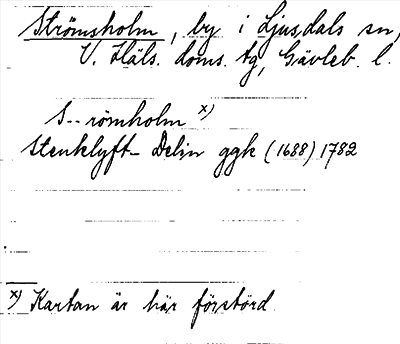 Strömsholm, by i Ljusdals sn,
V. Häls. doms. tg, Gävleb. l.
S-- römholm x)
Stenklyft- Delin ggk (1688) 1782
x) Kartan är här förstörd.